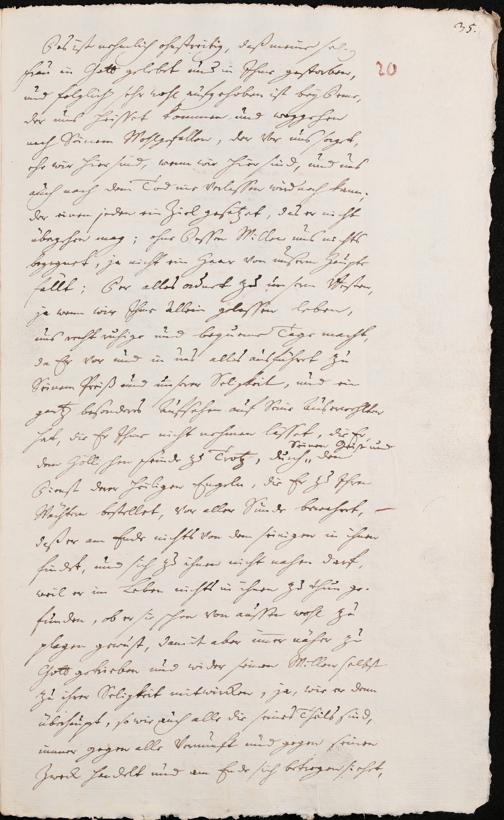 35.
20
Es ist nehmlich ohnstreitig, daß meine seelig
frau in Gott gelebet und in Ihme gestorben,
und folglich sehr wohl aufgehoben ist bey Deme,
der uns heisset kommen und weggehen
nach Seinem Wohlgefallen, der vor uns sorget,
ehe wir hier sind, wenn wir hier sind, und uns
auch nach dem Tod nie verlassen wird noch kann;
der einem jeden ein Ziel gesetzet, das er nicht
übergehen mag; ohne Dessen Willen uns nichts
begegnet, ja nicht ein Haar von unserm Haupte
fällt; Der alles ordnet zu unserm Besten,
ja wenn wir Ihme allein gelassen leben,
uns recht ruhige und bequeme Tage macht,
da Er vor und in uns alles ausführet zu
Seinem Preiß und unserer Seligkeit, und ein
gantz besonders Aufsehen auf Seine Auserwehlten
hat, die Er Ihme nicht nehmen lasset, die Er,
dem Höllischen feinde zu Trotz, durch Seinen Geist und den
Dienst derer Heiligen Engeln, die Er zu Ihren
Wächtern bestellet, vor aller Sünde bewahret,
daß er am Ende nichts von dem seinigen in ihnen
findet, und sich zu ihnen nicht nahen darf,
weil er im Leben nichts in ihnen zu thun ge-
funden, ob er sie schon von aussen wohl zu
plagen gewust, damit aber immer näher zu
Gott getrieben und wider seinen Willen selbst
zu ihrer Seligkeit mitwirken, ja, wie er denn
überhaupt, so wie auch alle die seines Theils sind,
immer gegen alle Vernunft und gegen seinen
Zweck handelt und am Ende sich betrogen siehet,